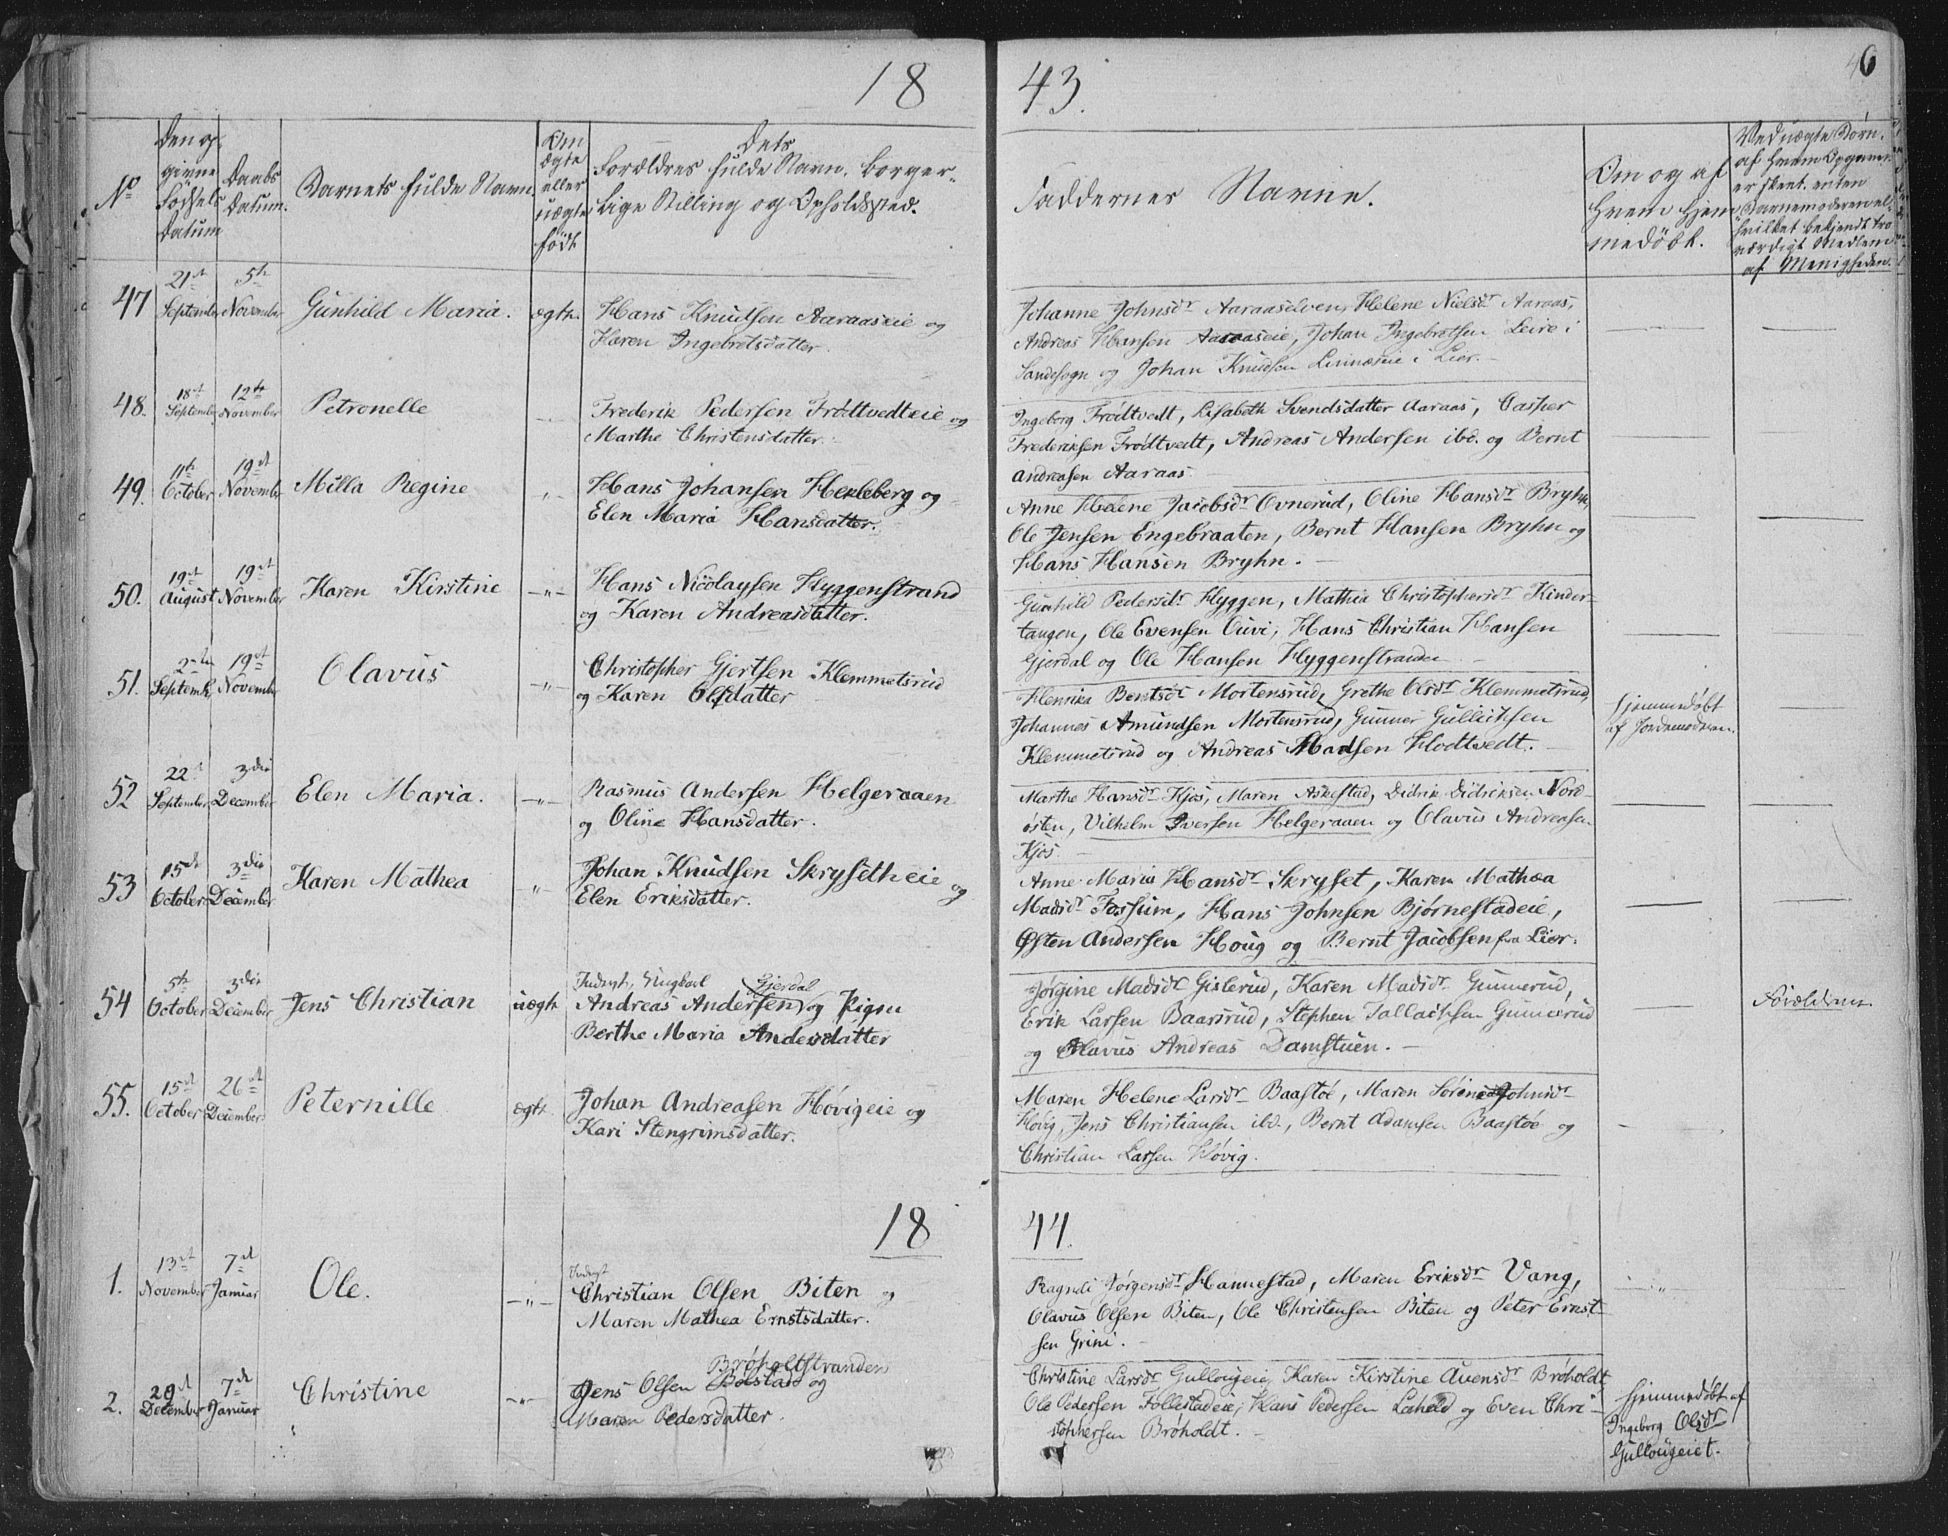 18
43.
6
No
Den op
givne
Fødsels
Datum
Daabs
Datum.
Barnets fulde Navn
Om
ægte
eller
uægte
født
Dets
Forældres fulde Navn, borger-
lige Stilling og Opholdssted.
Faddernes Navne.
Om og af
hvem hjem
medøbt.
Ved uægte Børn.
af hvem Opgaven
er skeet. enten
Barnemoderen el.
hvilket bekjendt tro
værdigt Medlem
af Menigheden.
47 21de September 5te November Gunhild Maria. ægth.
Hans Knudsen Aaraaseie og
Karen Ingebretsdatter.
Johanne Johnsdr Aaraaselven, Helene Nielsdr Aaraas,
Andreas Hansen Aaraaseie, Johan Ingebretsen Leire i
Sandesogn og Johan Knudsen Linnæseie i Lier. -
48. 18de September 12te November Petronelle
Frederik Pedersen Frødtvedteie og
Marthe Christensdatter.
Ingeborg Frødtvedt, Lisabeth Svendsdatter Aaraas, Casper
Frederiksen Frødtvedt, Andreas Andersen ibd. og Bernt
Andreasen Aaraas
49. 11te October 19de November Milla Regine -"-
Hans Johansen Hekleberg og
Elen Maria Hansdatter.
Anne Helene Jacobsdr Ovnerud, Oline Hansdr Bryhn,
Ole Jensen Engebraaten, Bernt Hansen Bryhn og
Hans Hansen Bryhn. -
50. 19de August 19de November Karen Kirstine -"-
Hans Nicolaysen Hyggenstrand
og Karen Andreasdatter.
Gunhild Pedersdr Hyggen, Mathia Christophersdr Kinder-
tangen, Ole Evensen Ouvi, Hans Christian Hansen
Gjerdal og Ole Hansen Hyggenstranden
51. 2den Septemb. 19de November Olavus -"-
Christopher Gjertsen Klemmetsrud
og Karen Olsdatter
Henrika Bentsdr Mortensrud, Grethe Olsdr Klemmetsrud,
Johannes Amundsen Mortensrud, Gunner Gullichsen
Klemmetsrud og Andreas Madsen Hodtvedt. -
Hjemmedøbt
af Jordemoderen.
52 22de September 3die December Elen Maria. -"-
Rasmus Andersen Helgeraaen
og Oline Hansdatter.
Marthe Hansdr Kjos, Maren Askestad, Didrik Didriksen Nord-
østen, Vilhelm Iversen Helgeraaen og Olavus Andreasen
Kjos.
53 15de October 3die December Karen Mathea "
Johan Knudsen Skrysetheie og
Elen Eriksdatter.
Anne Maria Hansdr Skryset, Karen Mathea
Madsdr Fossum, Hans Johnsen Bjørnestadeie,
Østen Andersen Houg og Bernt Jacobsen fra Lier.
54 5te October 3die December Jens Christian uægth
Indsdt, Ungkarl Gjerdal
Andreas Andersen og Pigen
Berthe Maria Andersdatter
Jørgine Madsdr Gislerud, Karen Madsdr Gunnerud,
Erik Larsen Baarsrud, Stephen Tallachsen Gunnerud
og Olavus Andreas Damstuen. -
Forældrene
55. 15de October 26de December Peternille ægth.
Johan Andreasen Høvigeie og
Kari Stengrimsdatter.
Maren Helene Larsdr Baastøe, Maren Sørine Johnsdr
Høvig, Jens Christiansen ibd., Bernt Adamsen Baastøe og
Christian Larsen Høvig.
18
44.
1. 13de November 7de Januar Ole. -"-
Indsdt
Christian Olsen Biten og
Maren Mathea Ernstsdatter.
Jørgensdr Hannestad, Maren Eriksdr Vang,
Olavus Olsen Biten, Ole Christensen Biten og Peter Ernst-
sen Grini. -
2. 29de December 7de Januar Christine -"-
Brøholtstranden
Jens Olsen Bølstad og
Maren Pedersdatter.
Christine Larsdr Gullougeie, Karen Kirstine Auensdr Brøholdt,
Ole Pedersen Follestadeie, Hans Pedersen og Even Chri-
stophersen Brøholdt. -
Hjemmedøbt af
Ingeborg Olsdr
Gullougeiet.